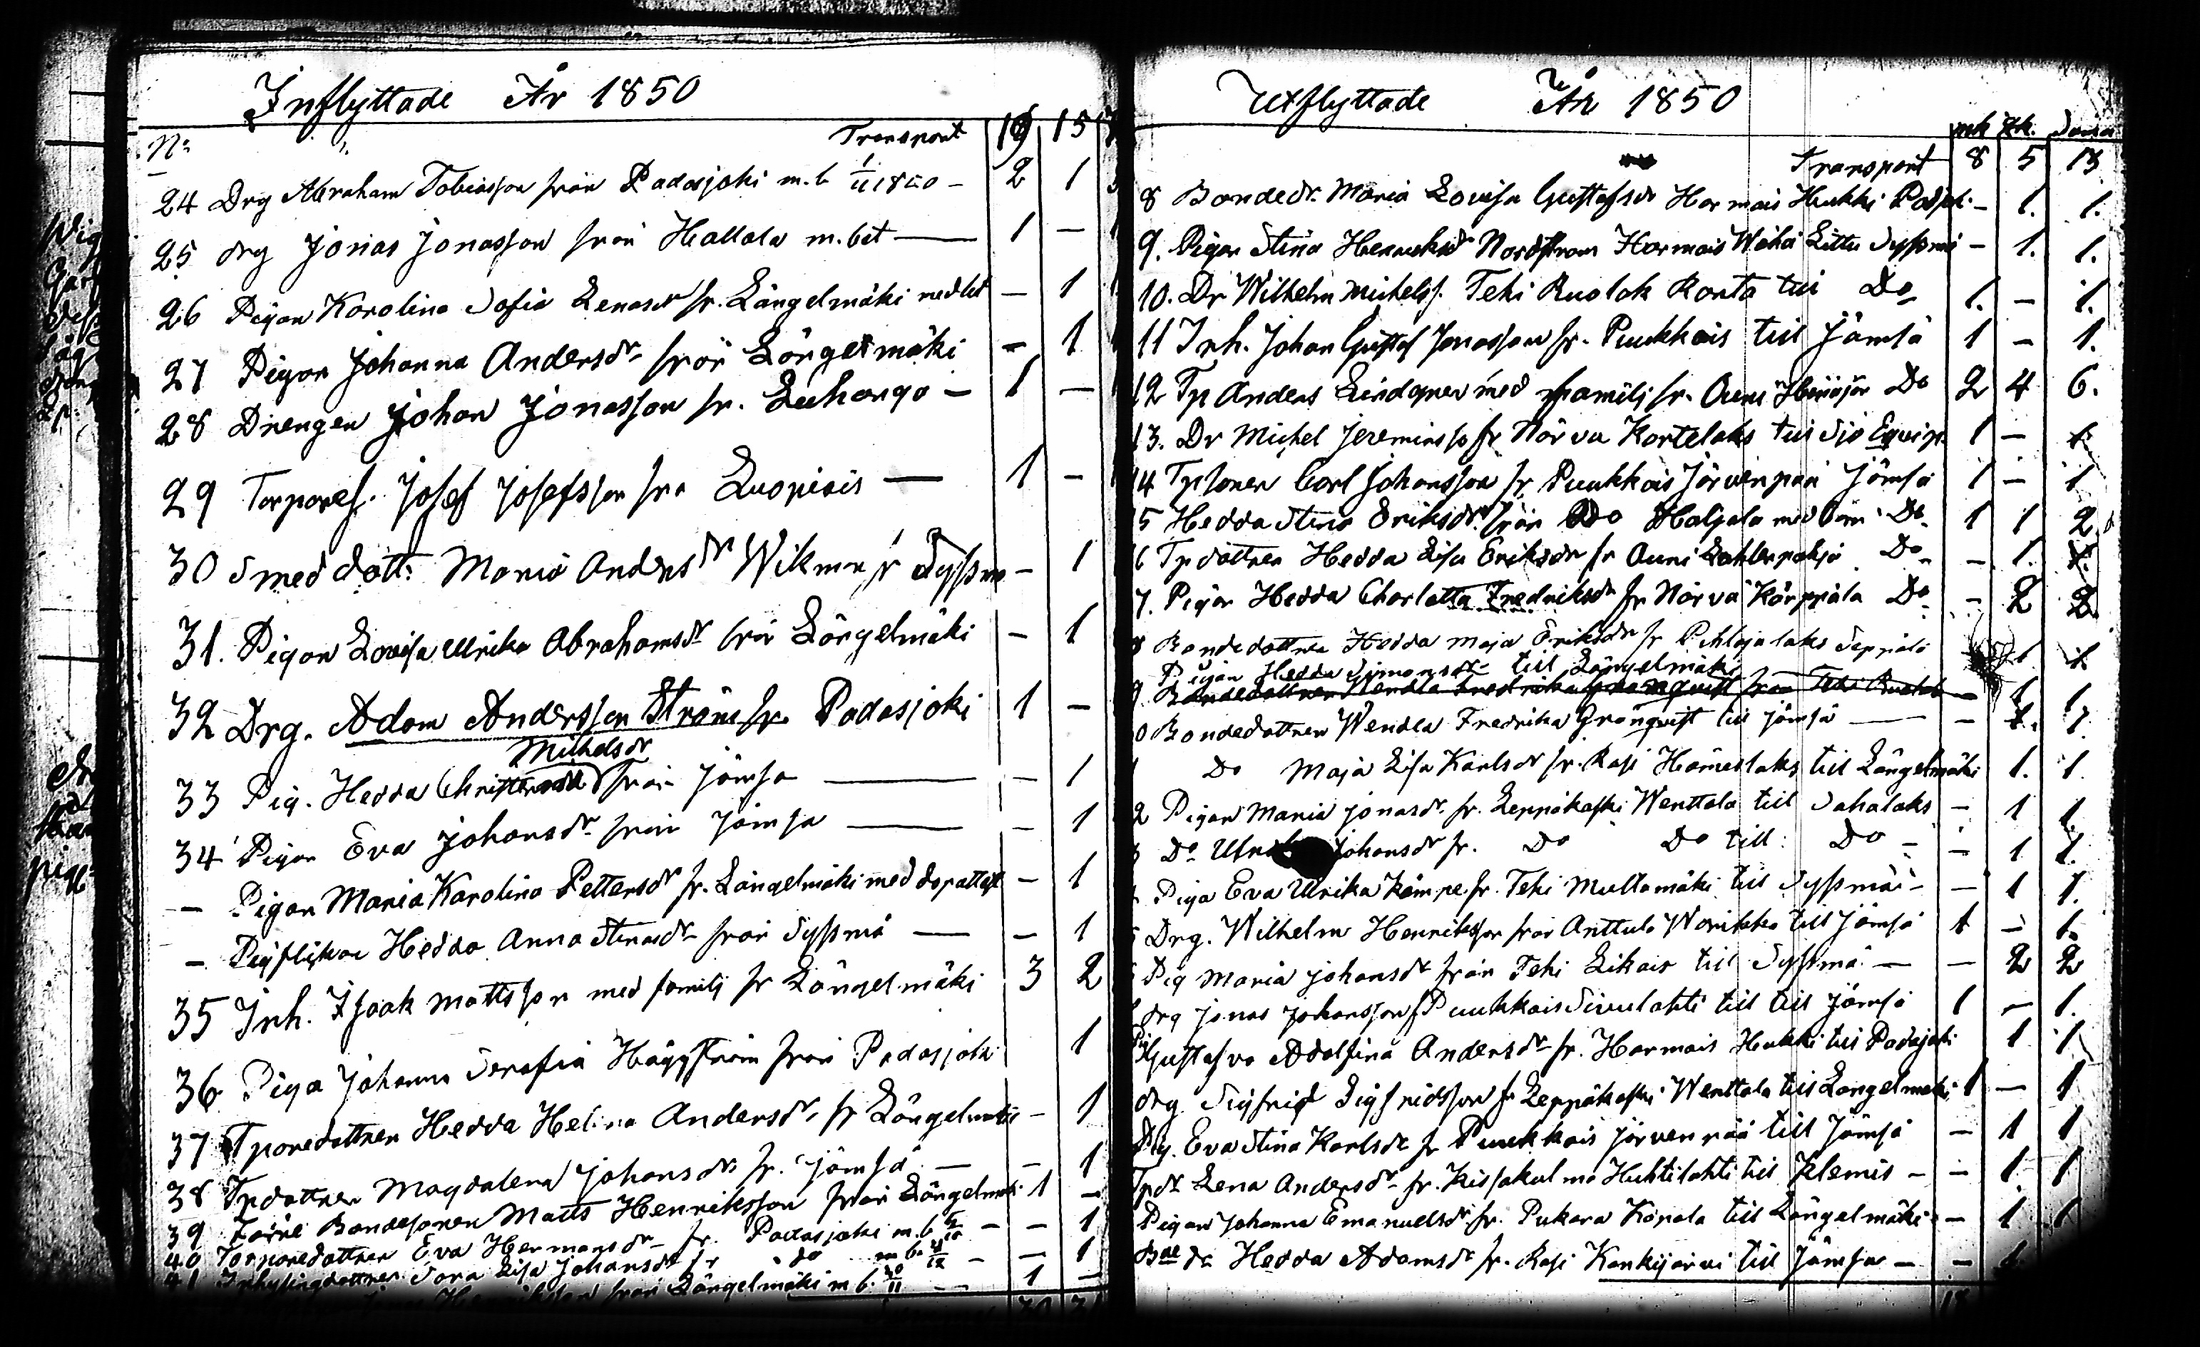 Inflyttade År 1850
No Transport 19 15
24 Drg Abraham Tobiasson från Padasjoki m.b. 1/11 1850 - 2 1
25 drg Jonas Jonasson från Hattula m. bet — 1 -
26 Pigan Karolina Sofia Lenasdr fr. Längelmäki med bet - 1
27 Pigan Johanna Andersdr från Längelmäki - 1
28 Drengen Johan Jonasson fr. Luhango - 1 -
29 Torparef. Josef Josefsson från Luopiois — 1 -
30 Smed dott: Maria Andersdr Wikman fr Syssmä - 1
31. Pigan Lovisa Ulrika Abrahamsdr från Längelmäki - 1
32 Drg. Adam Andersson Ström fr. Padasjoki 1 -
Michelsdr
33 Pig. Hedda från Jämsä — - 1
34 Pigan Eva Johansdr från Jämsä — - 1
— Pigan Maria Karolina Pettersdr fr. Längelmäki med dopattest - 1
— Pigflickan Hedda Anna Stinasdr från Syssmä — - 1
35 Inh. Isaak Mattsson med familj fr Längelmäki 3 2
36 Piga Johanna Serafia Häggström från Padasjoki 1
37 Tporedottren Hedda Helina Andersdr fr Längelmäki - 1
38 Tpdottren Magdalena Johansdr fr. Jämsä — - 1
39 Förre Bondesonen Matts Henriksson från Längelmäki 1 -
40 Torparedottren Eva Hermansdr fr. Padasjoki m.b. - - 1
41 Inhysingdottren Sara Lisa Johansdr fr do m b. - - 1
Henriksson från Längelmäki m b. 20/11 - - 1 -
Utflyttade År 1850
mk qk. Summa
Transport 8 5 13
8 Bondedr. Maria Lovisa Gustafsdr Harmois Hukki Padsjoki - 1. 1.
9. Pigan Stina Henriksdr Nordström Harmois Wähä Syssmä - 1. 1.
10. Dr Wilhelm Michelss. Tehi Ruolak till Do 1. - 1.
11 Inh. Johan Gustaf Jonasson fr. Puukkois till Jämsä 1 - 1.
12 Tp Anders Lindgren med familj fr. Do 2 4 6.
13. Dr Michel Jeremiass fr Norva Kortelaks till Sjö Equip. 1 - 1.
14 Tpsonen Carl Johansson fr Puukkois Järvenpää Jämsä 1 - 1
15 Hedda Stina Eriksdr från Do med barn Do 1 1 2
16 Tpdottren Hedda Lisa Eriksdr fr Auni Do - 1. 1.
17. Pigan Hedda Charlotta Fredriksdr fr Norva Körppälä Do - 2 2
18 Bondedottren Hedda Maja Eriksdr fr Pihlajalaks Seppälä 1 1.
Pigan Hedda Simonsdr till Längelmäki
9 Bondedottren Wendla Fredrika Granqvist från Tehi — 1 1
0 Bondedottren Wendla Fredrika Granqvist till Jämsä — - 1. 1.
Do Maja Lisa Karlsdr fr. Rasi Hämeslaks till Längelmäki 1. 1.
2 Pigan Maria Jonasdr. fr. Leppäkoski Wenttola till Sahalaks - 1 1
3 Do Johansdr fr. Do Do till Do - - 1 1.
Piga Eva Ulrika Kämpe fr. Tehi Multamäki till Syssmä - - 1 1.
Drg. Wilhelm Henriksson från Anttula Warikko till Jämsä 1 - 1.
Pig Maria Johansdr från Tehi Likois till Syssmä — - 2 2
drg Jonas Johansson f Puukkois Sivulahti till till Jämsä 1 - 1.
Gustafva Adolfina Andersdr fr. Harmois Hukki till Padasjoki 1 1
drg Sigfrid Sigfridsson fr Leppäkoski Wenttola till Längelmäki 1 - 1
Pig. Eva Stina Karlsdr fr Puukkois Järvenpää till Jämsä - 1 1
Tpdr Lena Andersdr fr. Kissakulma Huhtilahti till Jelemis - - 1. 1
Pigan Johanna Emanuelsdr fr. Pukara Köpälä till Längelmäki - 1. 1
Bde dr Hedda Adamsdr fr. Rasi Kankijärvi till Jämsä - - 1.